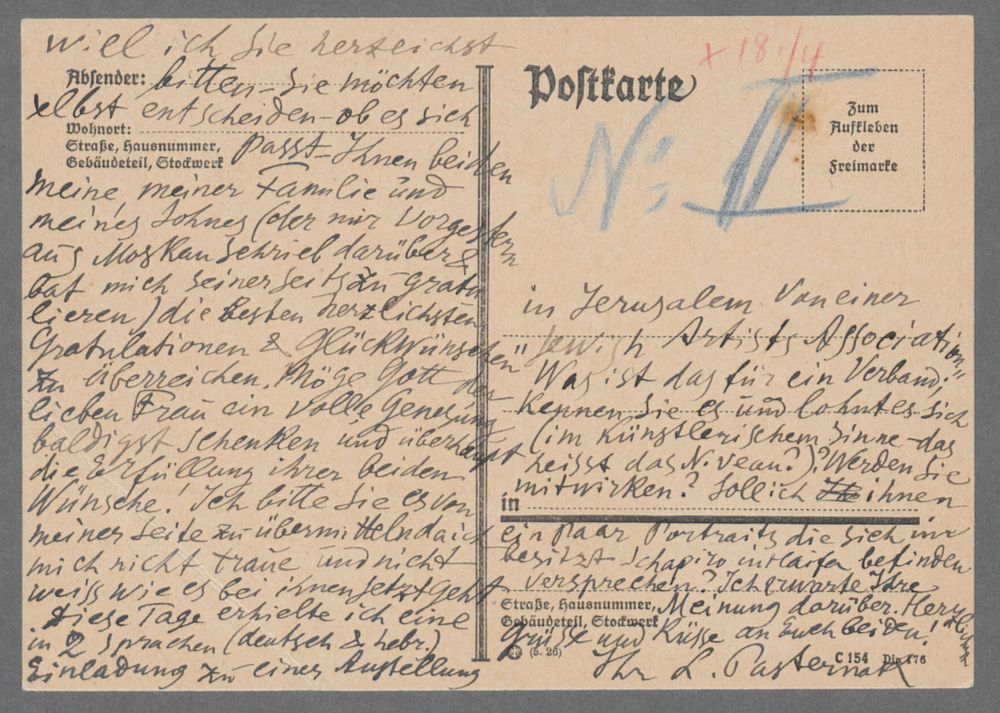 will ich Sie herzlichst
Absender: bitten – Sie möchten
selbst entscheiden – ob es sich
Wohnort:
Straße, Hausnummer,
Gebäudeteil, Stockwerk
passt – Ihnen beiden
meine meiner Familie und
meines Sohnes (der mir vorgestern
aus Moskau schrieb darüber &
bat mich seinerseits zu gratu
lieren) die besten herzlichsten
Gratulationen & Glückwünschen
zu überreichen. Möge Gott der
lieben Frau ein volle Genesung
baldigst schenken und überhaupt
die Erfüllung ihrer beiden
Wünsche! Ich bitte Sie es von
meiner Seite zu übermitteln da ich
mich nicht traue und nicht
weiss wie es bei ihnen jetzt geht
Diese Tage erhielte ich eine
in 2 Sprachen (deutsch & hebr.)
Einladung zu einer Austellung
Postkarte
x 18./4
No: II
Zum
Aufkleben
der
Freimarke
in Jerusalem. Von einer
"Jewish Artists Association"
Was ist das für ein Verband;
kennen Sie es und lohnt es sich
(im künstlerischem Sinne – das
heisst das Niveau?)? Werden Sie
mitwirken? Soll ich ihnen
in
ein paar Portraits die sich im
besitzt Schapiro in Haifa befinden
versprechen? Ich erwarte Ihre
Straße, Hausnummer,
Gebäudeteil, Stockwerk
Meinung darüber. Herzlichste
Grüsse und Küsse an Euch beiden!
(5. 26)
Ihr L. Pasternak
C 154 Din 476